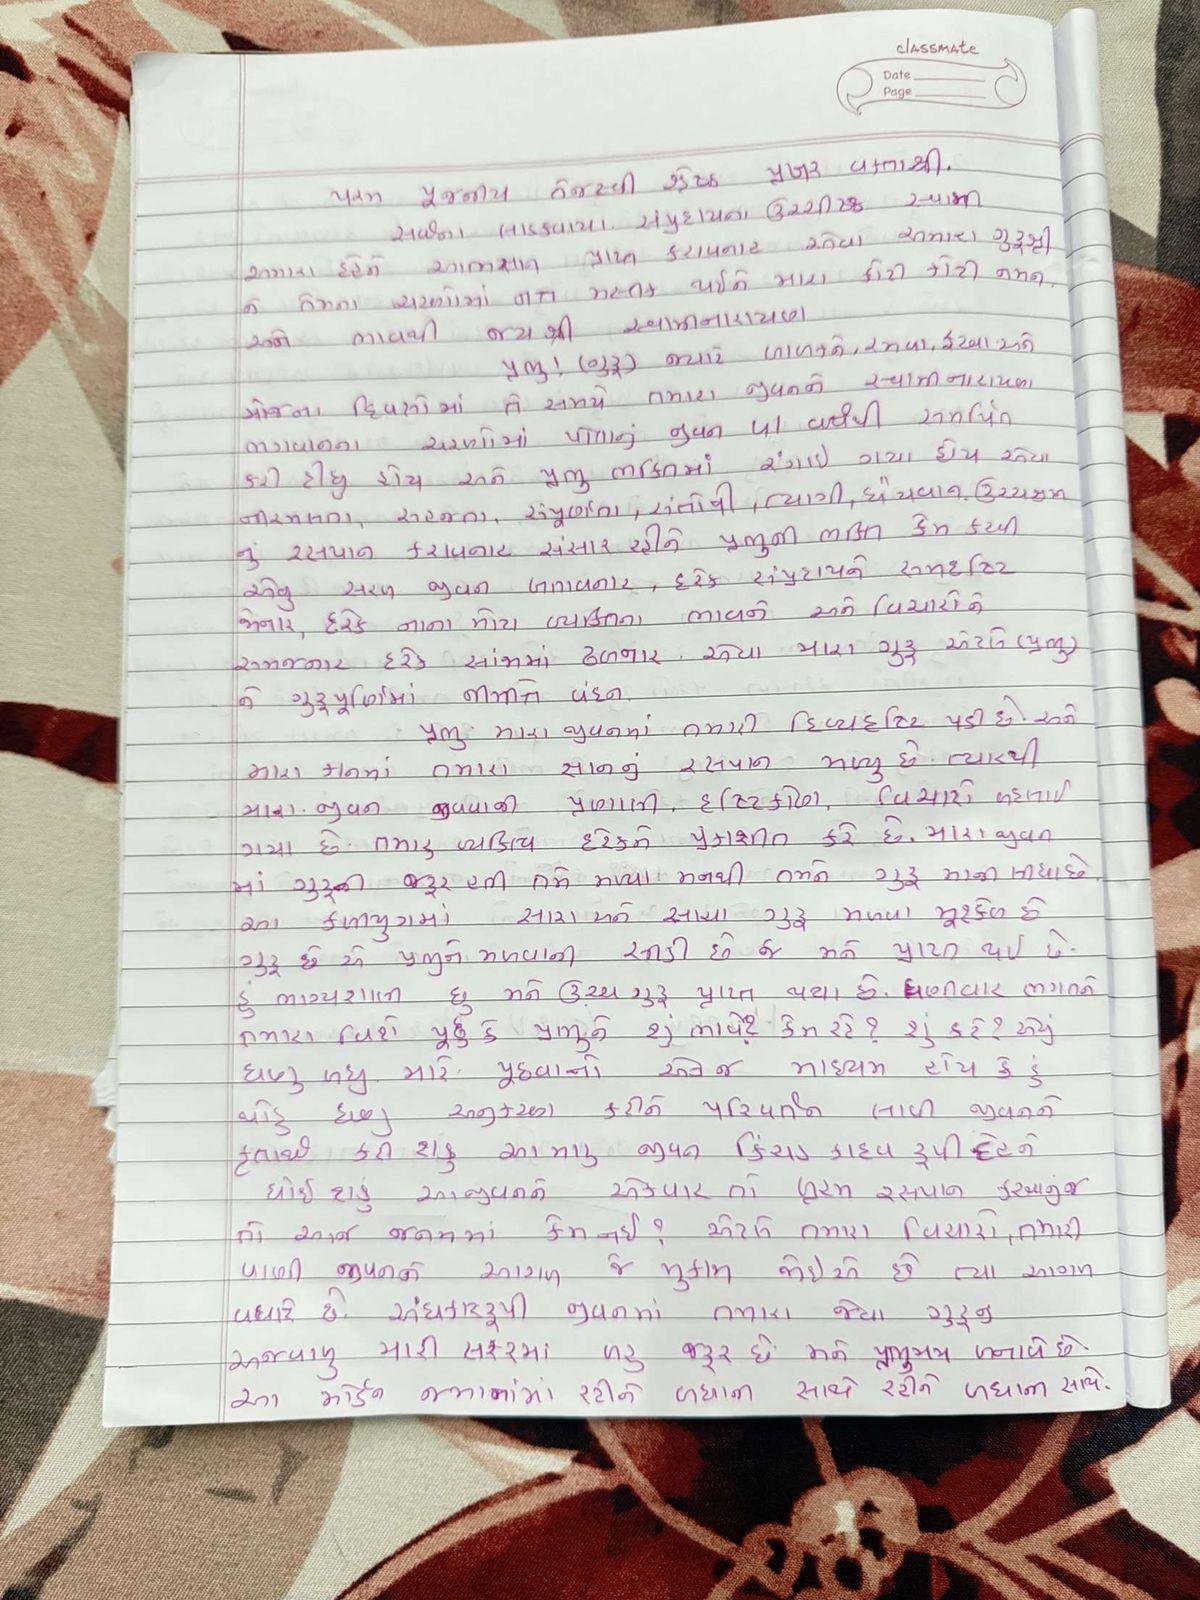 classmate
Date
Page
પરમ પૂજનીય તેજસ્વી પ્રખર વક્તાશ્રી.
સર્વના લાડકવાયા. સંપ્રદાયના સ્વામી
અમારા દરેકને આત્મજ્ઞાન પ્રાપ્ત કરાવનાર એવા અમારા ગુરૂશ્રી
ને તેમના ચરણોમાં નત મસ્તક થઈને મારા કોટી કોટી નમન.
અને ભાવથી જય શ્રી સ્વામીનારાયણ
પ્રભુ! (ગુરૂ) જ્યારે બાળકને, રમવા, ફરવા અને
મોજના દિવસોમાં તે સમયે તમારા જીવનને સ્વામીનારાયણ
ભગવાનના ચરણોમાં પોતાનું જીવન વર્ષથી સમર્પિત
કરી દીધુ હોય અને પ્રભુ ભક્તિમાં રંગાઈ ગયા હોય એવા
નીરમળતા, સરળતા, સંપૂર્ણતા, સંતોષી, ત્યાગી, ધૈયવાન,
નું રસપાન કરાવનાર સંસાર રહીને પ્રભુની ભક્તિ કેમ કરવી
એવુ સરળ જીવન બનાવનાર, દરેક સંપ્રદાયને સમદ્રષ્ટિ
જોનાર, દરેક નાના મોટા વ્યક્તિના ભાવને અને વિચારોને
સમજનાર દરેક સાંચામાં ઢળનાર. એવા મારા ગુરૂ એટલે (પ્રભુ)
ને ગુરૂપૂર્ણિમાં નીમીત્તે વંદન.
પ્રભુ મારા જીવનમાં તમારી દિવ્યદ્રષ્ટિ પડી છે અને
મારા કાનમાં તમારા જ્ઞાનનું રસપાન મળ્યુ છે. ત્યારથી
મારા. જીવન જીવવાની પ્રણાલી, દ્રષ્ટિકોણ, વિચારો બદલાઈ
ગયા છે. તમારૂ વ્યક્તિત્વ દરેકને પ્રકાશીત કરે છે. મારા જીવન
માં ગુરૂની જરૂર હતી તમે મળ્યા મનથી તમને ગુરૂ માની લીધા છે.
આ કળયુગમાં સારા અને સાચા ગુરૂ મળવા મૂશ્કેલ છે
ગુરૂ છે એ પ્રભુને મળવાની સીડી છે જે મને પ્રાપ્ત થઈ છે.
હું ભાગ્યશાળી છુ મને ઉચ્ચ ગુરૂ પ્રાપ્ત થયા છે. ઘણીવાર ભગતને
તમારા વિશે પૂછું કે પ્રભુને શું ભાવે? કેમ રહે? શું કરે? એવું
ઘણુ બધુ. મારે પૂછવાનો એક જ માધ્યમ હોય કે હું
થોડુ ઘણુ અનુકરણ કરીને પરિવર્તન લાવી જીવનને
કૃતાર્થ કરી શકુ આ મારૂ જીવન કિચડ કાદવ રૂપી દેહને
ધોઈ શકું આ જીવનને એકવાર તો રસપાન કરવાનું જ
તો આજ જનમમાં કેમ નહી? એટલે તમારા વિચારો, તમારી
વાણી જીવનને આગળ જે મુકામ જોઈએ છે ત્યા આગળ
વધારે છે. અંધકારરૂપી જીવનમાં તમારા જેવા ગુરૂનું
અજવાળુ મારી સફરમાં બહુ જરૂર છે. મને પ્રભુમય બનાવે છે.
આ મોર્ડન જમાનામાં રહીને બધાની સાથે રહીને બધાની સાથે.